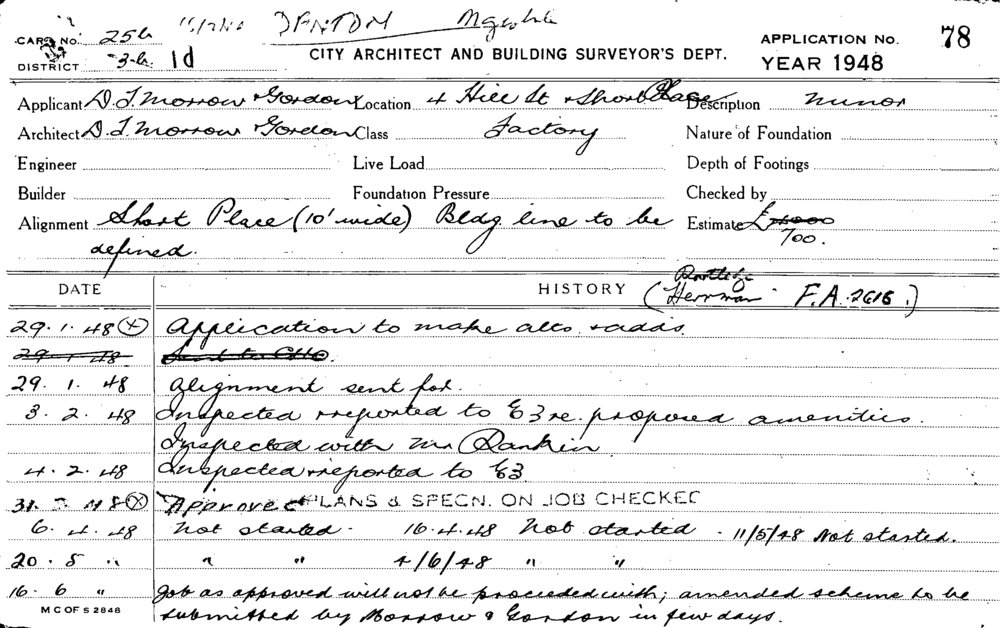 DENTON
CARD No. 256 CITY ARCHITECT AND BUILDING SURVEYOR'S DEPT. APPLICATION No. 78
DISTRICT 3-6. 1d YEAR 1948
Applicant D.T. Morrow & Gordon Location 4 Hill St & Short Place Description Minor
Architect D.T. Morrow & Gordon Class Factory Nature of Foundation
Engineer Live Load Depth of Footings
Builder Foundation Pressure Checked by
Alignment Short Place (10' wide) Bldg. line to be Estimate £
defined. 700.
DATE HISTORY (Herrman F.A. 2616.)
29.1.48 (x) Application to make alts & adds.
29.1.48 Sent to CHO.
29.1.48 Alignment sent for.
3.2.48 Inspected & reported to E3 re. proposed amenities.
Inspected with Mr Rankin
4.2.48 Inspected & reported to E3
31.3.48 (x) Approved PLANS & SPECN. ON JOB CHECKED
6.4.48 Not started - 16.4.48 Not started - 11/5/48 Not started.
20.5 " " " 4/6/48 " "
16.6 " Job as approved will not be proceeded with; amended scheme to be
MC OF S 2848 submitted by Morrow & Gordon in few days.